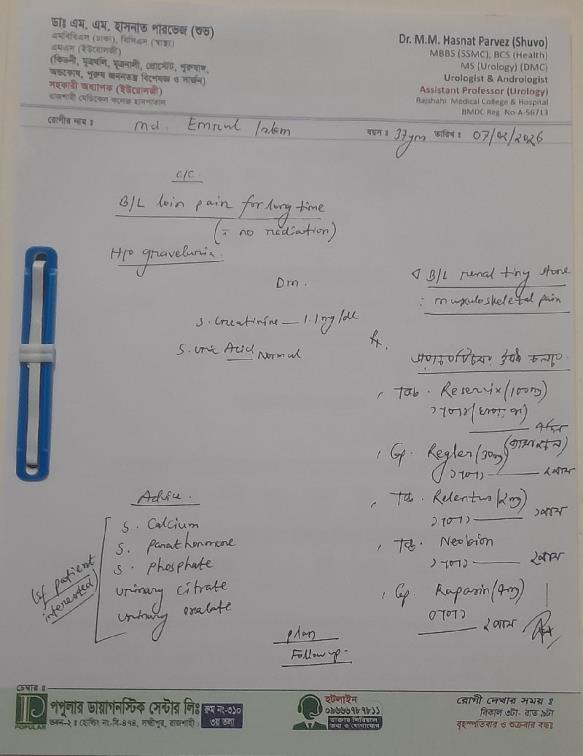 ডাঃ এম. এম. হাসনাত পারভেজ (শুভ)
এমবিবিএস (ঢাকা), বিসিএস (স্বাস্থ্য)
এমএস (ইউরোলজী)
(কিডনী, মূত্রথলি, মূত্রনালী, প্রোস্টেট, পুরুষাঙ্গ,
অন্ডকোষ, পুরুষ জননতন্ত্র বিশেষজ্ঞ ও সার্জন)
সহকারী অধ্যাপক (ইউরোলজী)
রাজশাহী মেডিকেল কলেজ হাসপাতাল
Dr. M.M. Hasnat Parvez (Shuvo)
MBBS (SSMC), BCS (Health)
MS (Urology) (DMC)
Urologist & Andrologist
Assistant Professor (Urology)
Rajshahi Medical College & Hospital
BMDC Reg. No-A-56713
রোগীর নাম ঃ md. Emrul Islam বয়স ঃ 37ym তারিখ ঃ
C/C
B/L loin pain for long time
(= no radiation)
H/o graveluria
Dm.
S. Creatinine — 1.1 mg/dl
S. Uric Acid Normal
Advice.
S. Calcium
S. Parathormone
S. Phosphate
urinary citrate
urinary oxalate
(if patient
interested)
Plan
Follow up-
B/L renal tiny stone
: musculoskeletal pain
Rx.
Tab. Reservix (100mg)
১+০+১
Cap. Regler
১+০+১ ২মাস
Tab. Relentus (2mg)
১+০+১ ১মাস
Tab. Neobion
১+০+১ ২মাস
Cap. Raparin (4mg)
০+০+১ ২মাস
চেম্বার ঃ
POPULAR
পপুলার ডায়াগনস্টিক সেন্টার লিঃ রুম নং-৩১০
৩য় তলা
ভবন-২ ঃ হোল্ডিং নং.বি-৪৭৪, লক্ষীপুর, রাজশাহী
হটলাইন
০৯৬৬৬৭৮৭৮১১
ডাক্তার সিরিয়াল
তথ্য ও যোগাযোগ
রোগী দেখার সময় ঃ
বিকাল ৩টা- রাত ৯টা
বৃহস্পতিবার ও শুক্রবার বন্ধ